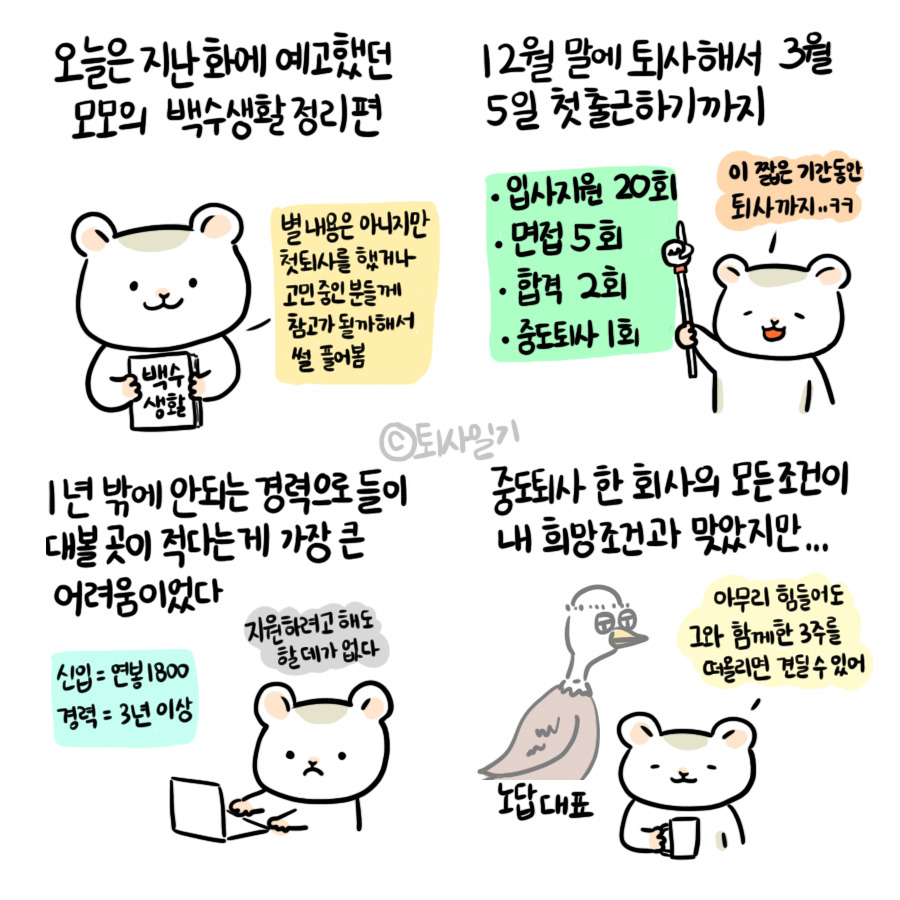 오늘은 지난 화에 예고했던
모모의 백수생활 정리편
별 내용은 아니지만
첫퇴사를 했거나
고민 중인 분들께
참고가 될까해서
썰 풀어봄
백수
생활
12월 말에 퇴사해서 3월
5일 첫 출근하기까지
• 입사지원 20회
• 면접 5회
• 합격 2회
• 중도퇴사 1회
이 짧은 기간동안
퇴사까지..ㅋㅋ
©퇴사일기
1년 밖에 안되는 경력으로 들이
대볼 곳이 적다는게 가장 큰
어려움이었다
지원하려고 해도
할 데가 없다
신입 = 연봉 1800
경력 = 3년 이상
중도퇴사 한 회사의 모든조건이
내 희망조건과 맞았지만...
아무리 힘들어도
그와 함께한 3주를
떠올리면 견딜 수 있어
노답 대표